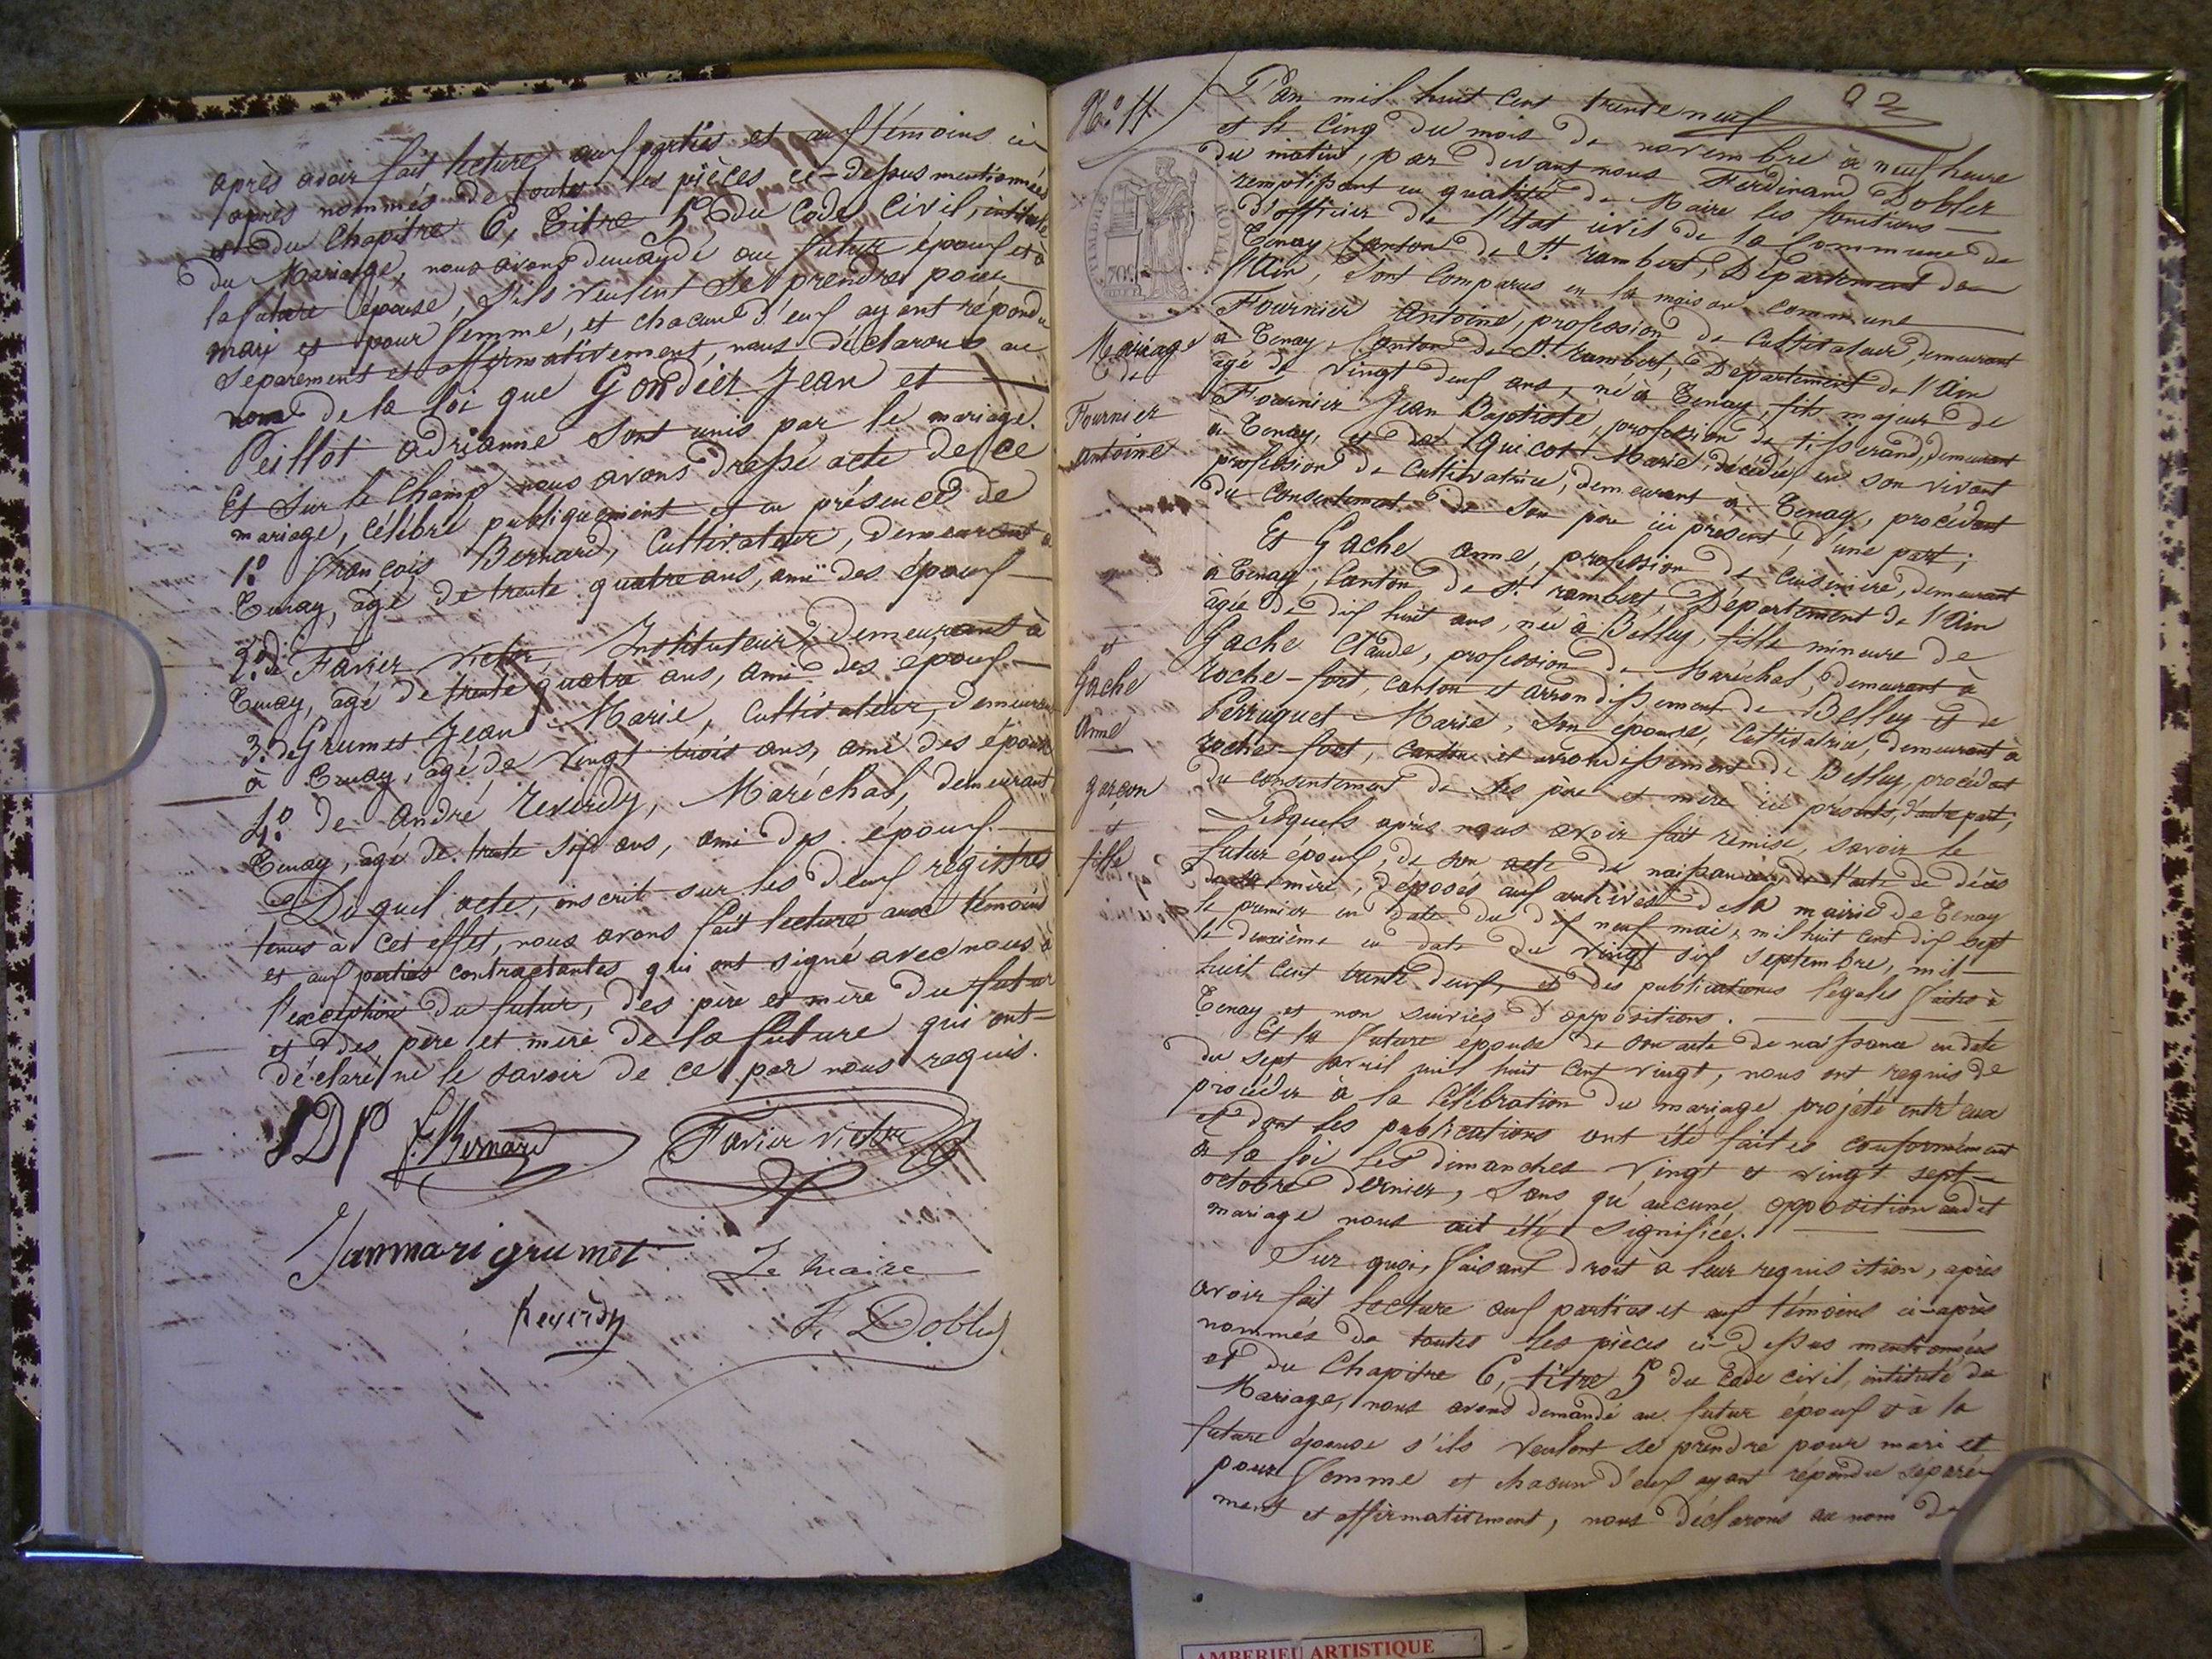 après avoir fait lecture aux parties et aux témoins ci-
après nommés de toutes les pièces ci-dessus mentionnées
et du Chapitre 6, Titre 5 du Code civil, intitulé
du Mariage, nous avons demandé au futur époux et à
la future épouse, s'ils veulent se prendre pour
mari et pour femme, et chacun d'eux ayant répondu
séparement et affirmativement, nous déclarons au
nom de la loi que Gondier Jean et
Peillot adrianne sont unis par le mariage.
Et Sur le Champ nous avons dressé acte de ce
mariage, célébré publiquement et en présence de
1.° François Bernard, Cultivateur, demeurant à
Tenay, agé de trente quatre ans, ami des époux
2.° de Favier Victor, Instituteur, demeurant à
Tenay, agé de trente quatre ans, ami des époux
3.° de Grumet Jean Marie, Cultivateur, demeurant
à Tenay, agé de vingt trois ans, ami des époux
4.° de André Reverdy, Maréchal, demeurant
Tenay, agé de trente six ans, ami des époux.
Duquel acte, inscrit sur les deux régistres
tenus à cet effet, nous avons fait lecture aux témoins
et aux parties contractantes qui ont signé avec nous à
l'exception du futur, des père et mère du futur
et des père et mère de la future qui ont
déclaré ne le savoir de ce par nous requis.
F. Bernard Favier Victor
Janmari grumet Le Maire
Reverdy F. Dobler
N.° 11
92
L'an mil huit cent trente neuf
et le cinq du mois de novembre à neuf heure
du matin, par devant nous Ferdinand Dobler
remplissant en qualité de Maire les fonctions
d'officier de l'Etat civil de la Commune de
Tenay, Canton de St. rambert, Département de
l'Ain, sont comparus en la maison commune
TIMBRE ROYAL
70c.
Mariage
de
Fournier
antoine
et
Gache
Anne
garçon
et
fille
Fournier Antoine, profession de Cultivateur, demeurant
à Tenay, Canton de St. rambert, Département de l'Ain
agé de vingt deux ans, né à Tenay, fils majeur de
Fournier Jean Baptiste, profession de tisserand, demeurant
à Tenay, et de Marie, décédée en son vivant
profession de Cultivatrice, demeurant à Tenay, procédant
du consentement de son père ici présent, d'une part;
Et Gache anne, profession de Cuisinière, demeurant
à Tenay, Canton de St. rambert, Département de l'Ain
agée de dix huit ans, née à Belley, fille mineure de
Gache Claude, profession de Maréchal, demeurant à
roche-fort, canton et arrondissement de Belley et de
Perruquet Marie, son épouse, Cultivatrice, demeurant à
roche-fort, canton et arrondissement de Belley, procédant
du consentement de ses père et mère ici présents, d'autre part;
Lesquels après nous avoir fait remise, savoir le
futur époux, de son acte de naissance, de l'acte de décès
de sa mère, déposés aux archives de la mairie de Tenay
le premier en date du dix neuf mai, mil huit cent dix sept
le deuxième en date du vingt six septembre, mil
huit cent trente deux, et des publications légales faites à
Tenay et non suivies d'oppositions.
Et la future épouse de son acte de naissance en date
du sept avril mil huit cent vingt, nous ont requis de
procéder à la Célébration du mariage projeté entr'eux
et dont les publications ont été faites conformément
à la loi les dimanches vingt et vingt sept
octobre dernier, sans qu'aucune opposition audit
mariage nous ait été signifiée.
Sur quoi, faisant droit à leur requisition, après
avoir fait lecture aux parties et aux témoins ci-après
nommés de toutes les pièces ci-dessus mentionnées
et du Chapitre 6, titre 5 du Code civil, intitulé du
Mariage, nous avons demandé au futur époux et à la
future épouse s'ils veulent se prendre pour mari et
pour femme et chacun d'eux ayant répondu séparé-
ment et affirmativement, nous déclarons au nom de
AMBERIEU ARTISTIQUE